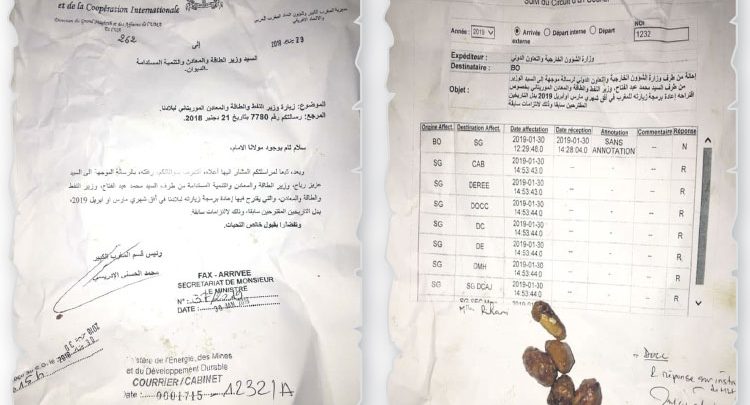 et de la Coopération Internationale
262
2019 يناير 29
إلى
السيد وزير الطاقة والمعادن والتنمية المستدامة
-الديوان-
الموضوع: زيارة وزير النفط والطاقة والمعادن الموريتاني لبلادنا.
المرجع: رسالتكم رقم 7780 بتاريخ 21 دجنبر 2018.
سلام تام بوجود مولانا الإمام،
وبعد، تبعا لمراسلتكم المشار إليها أعلاه،
عزيز رباح، وزير الطاقة والمعادن والتنمية المستدامة من طرف السيد محمد عبد الفتاح، وزير النفط
والطاقة والمعادن، والتي يقترح فيها إعادة برمجة زيارته لبلادنا في أفق شهري مارس أو ابريل 2019،
بدل التاريخين المقترحين سابقا، وذلك لالتزامات سابقة.
وتفضلوا بقبول خالص التحيات.
رئيس قسم المغرب الكبير
محمد الحسني الإدريسي
FAX - ARRIVEE
SECRETARIAT DE MONSIEUR
LE MINISTRE
N°:
DATE: 29 JAN 2019
Ministère de l'Energie, des Mines
et du Développement Durable
COURRIER/CABINET
0001715
Suivi du Circuit d'un Courrier
Année: 2019
Arrivée externe
Départ interne
Départ externe
NOI
1232
Expéditeur: وزارة الشؤون الخارجية والتعاون الدولي
Destinataire: BO
Objet:
إحالة من طرف وزارة الشؤون الخارجية والتعاون الدولي لرسالة موجهة إلى السيد الوزير
من طرف السيد محمد عبد الفتاح، وزير النفط والطاقة والمعادن الموريتاني بخصوص
اقتراحه إعادة برمجة زيارته للمغرب في أفق شهري مارس أوابريل 2019 بدل التاريخين
المقترحين سابقا لالتزامات سابقة
Origine Affect. Destination Affect. Date affectation Date réception Annotation Commentaire Réponse
BO SG 2019-01-30 12:29:48.0 2019-01-30 14:28:04.0 SANS ANNOTATION N
SG CAB 2019-01-30 14:53:43.0 R
SG DEREE 2019-01-30 14:53:43.0 R
SG DOCC 2019-01-30 14:53:44.0 R
SG DC 2019-01-30 14:53:44.0 R
SG DE 2019-01-30 14:53:44.0 R
SG DMH 2019-01-30 14:53:44.0 R
SG SG DCAJ 2019-01-30 14:53:44.0 R